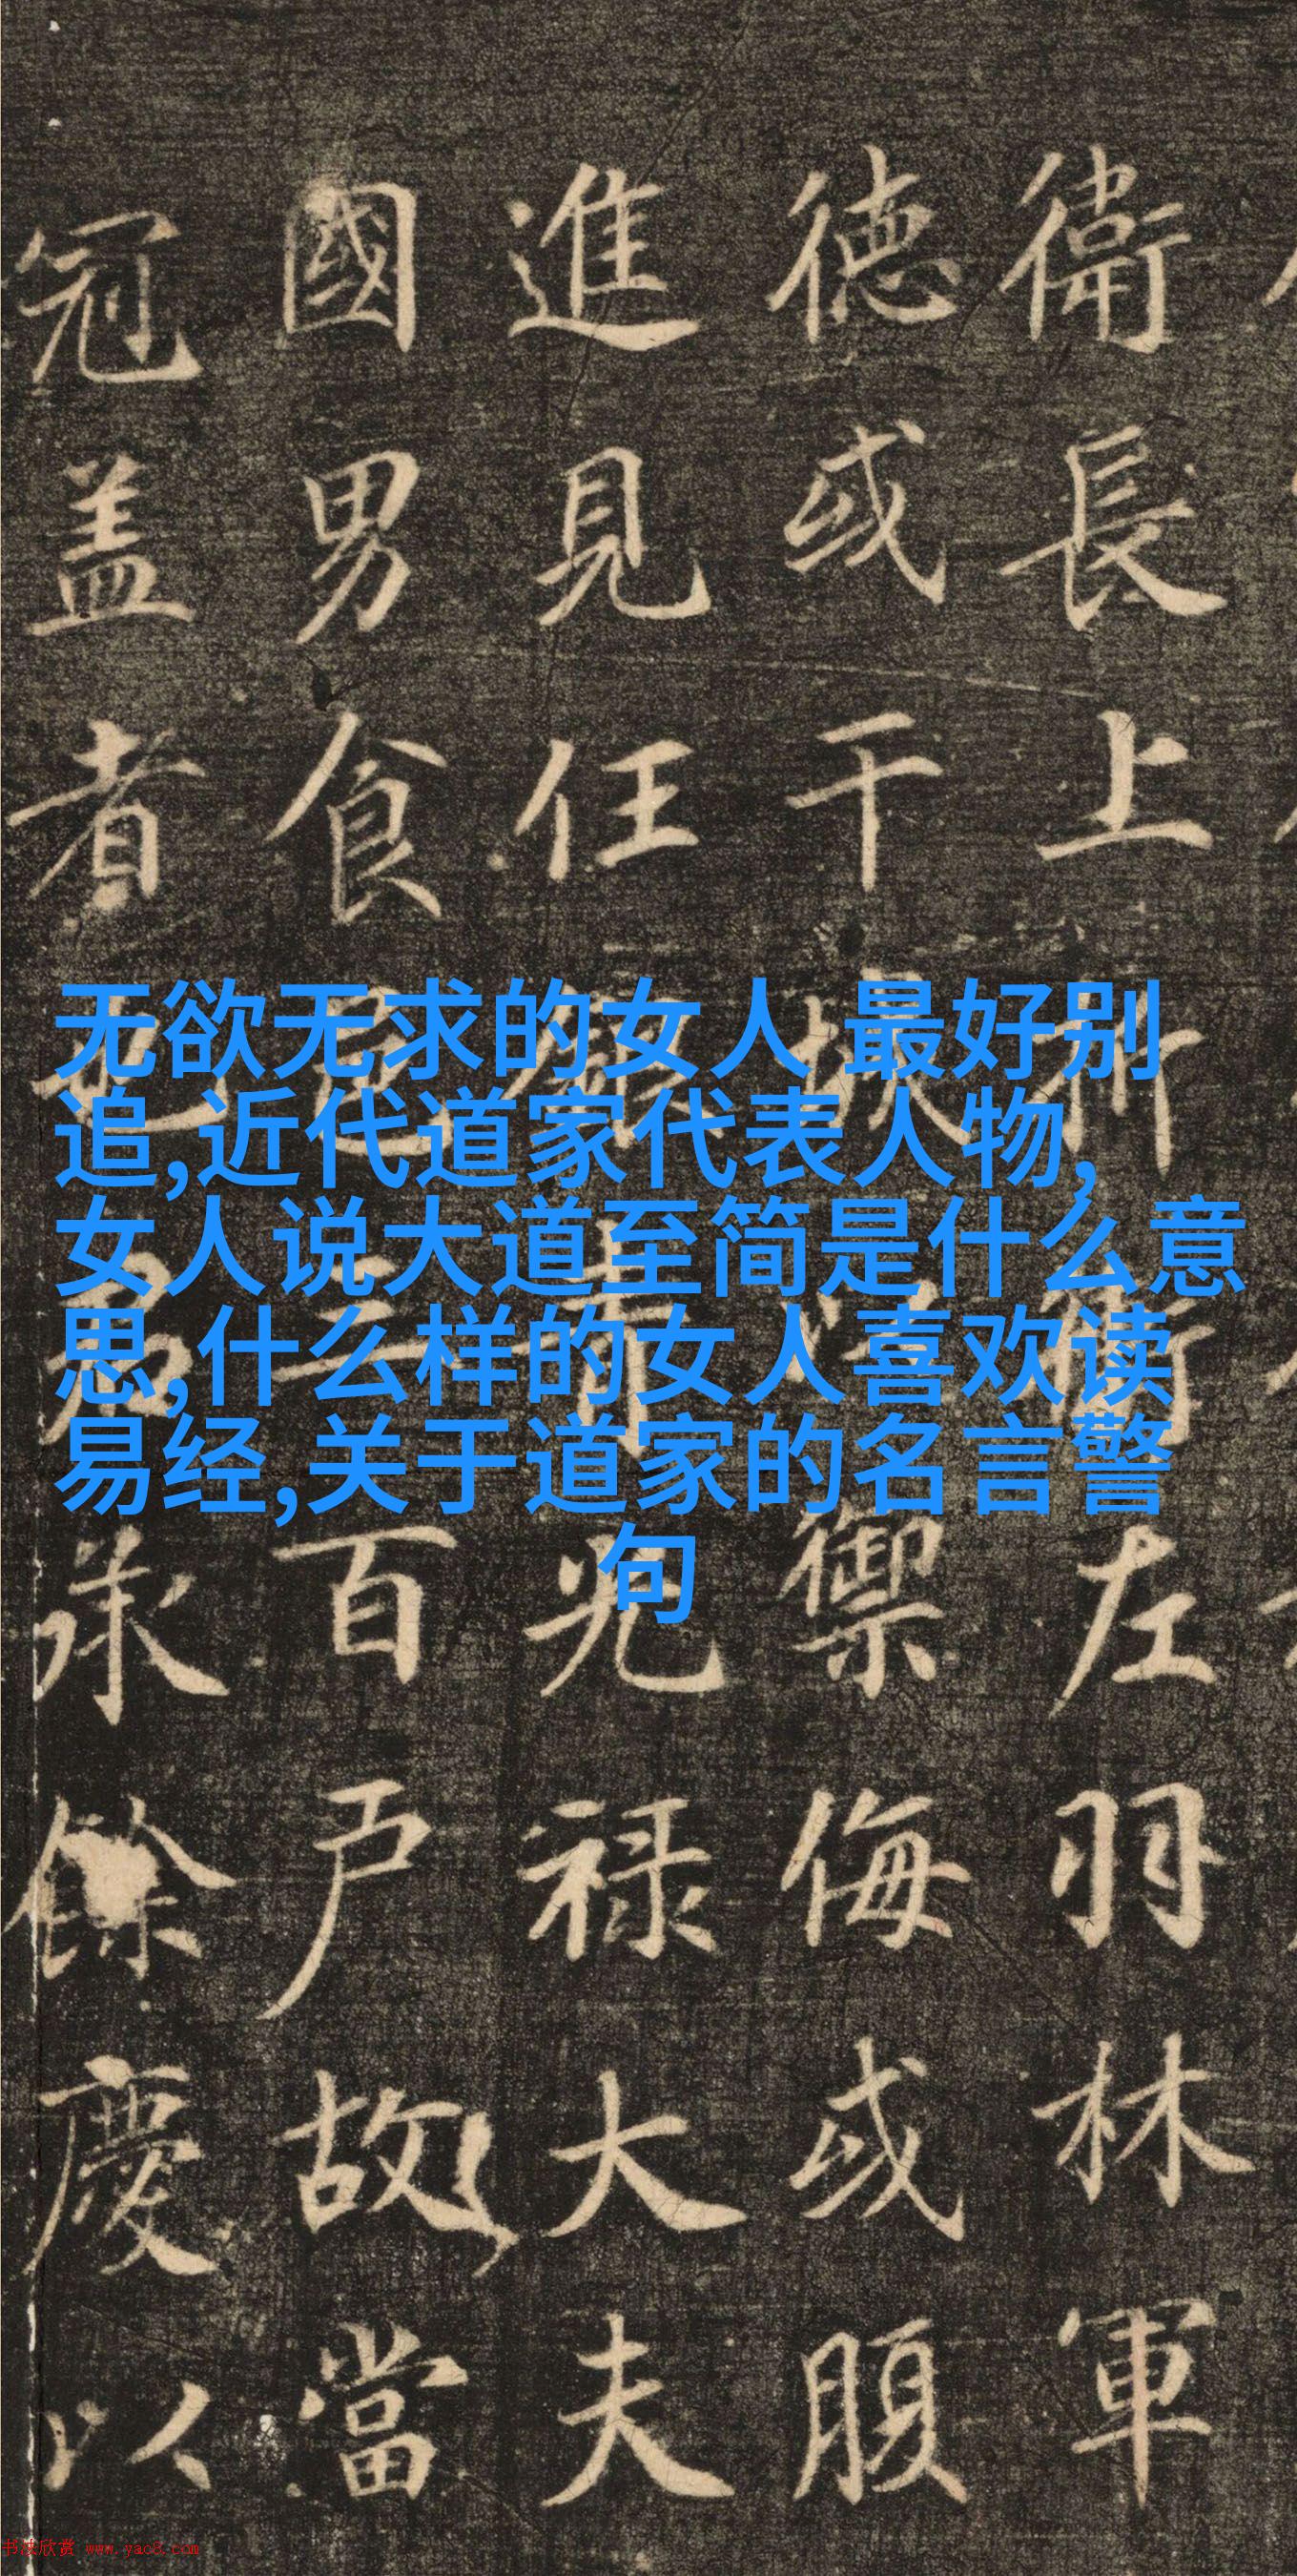 无欲无求的女人 最好别
追,近代道家代表人物,
女人说大道至简是什么意
思,什么样的女人喜欢读
易经,关于道家的名言警
句
衛長上所 衛左羽林軍
德或干城 禦侮或腹
進見任 光禄大夫
國男食邑三百戸故當
冠盖者也 承餘慶以
书法欣赏 www.yac8.com